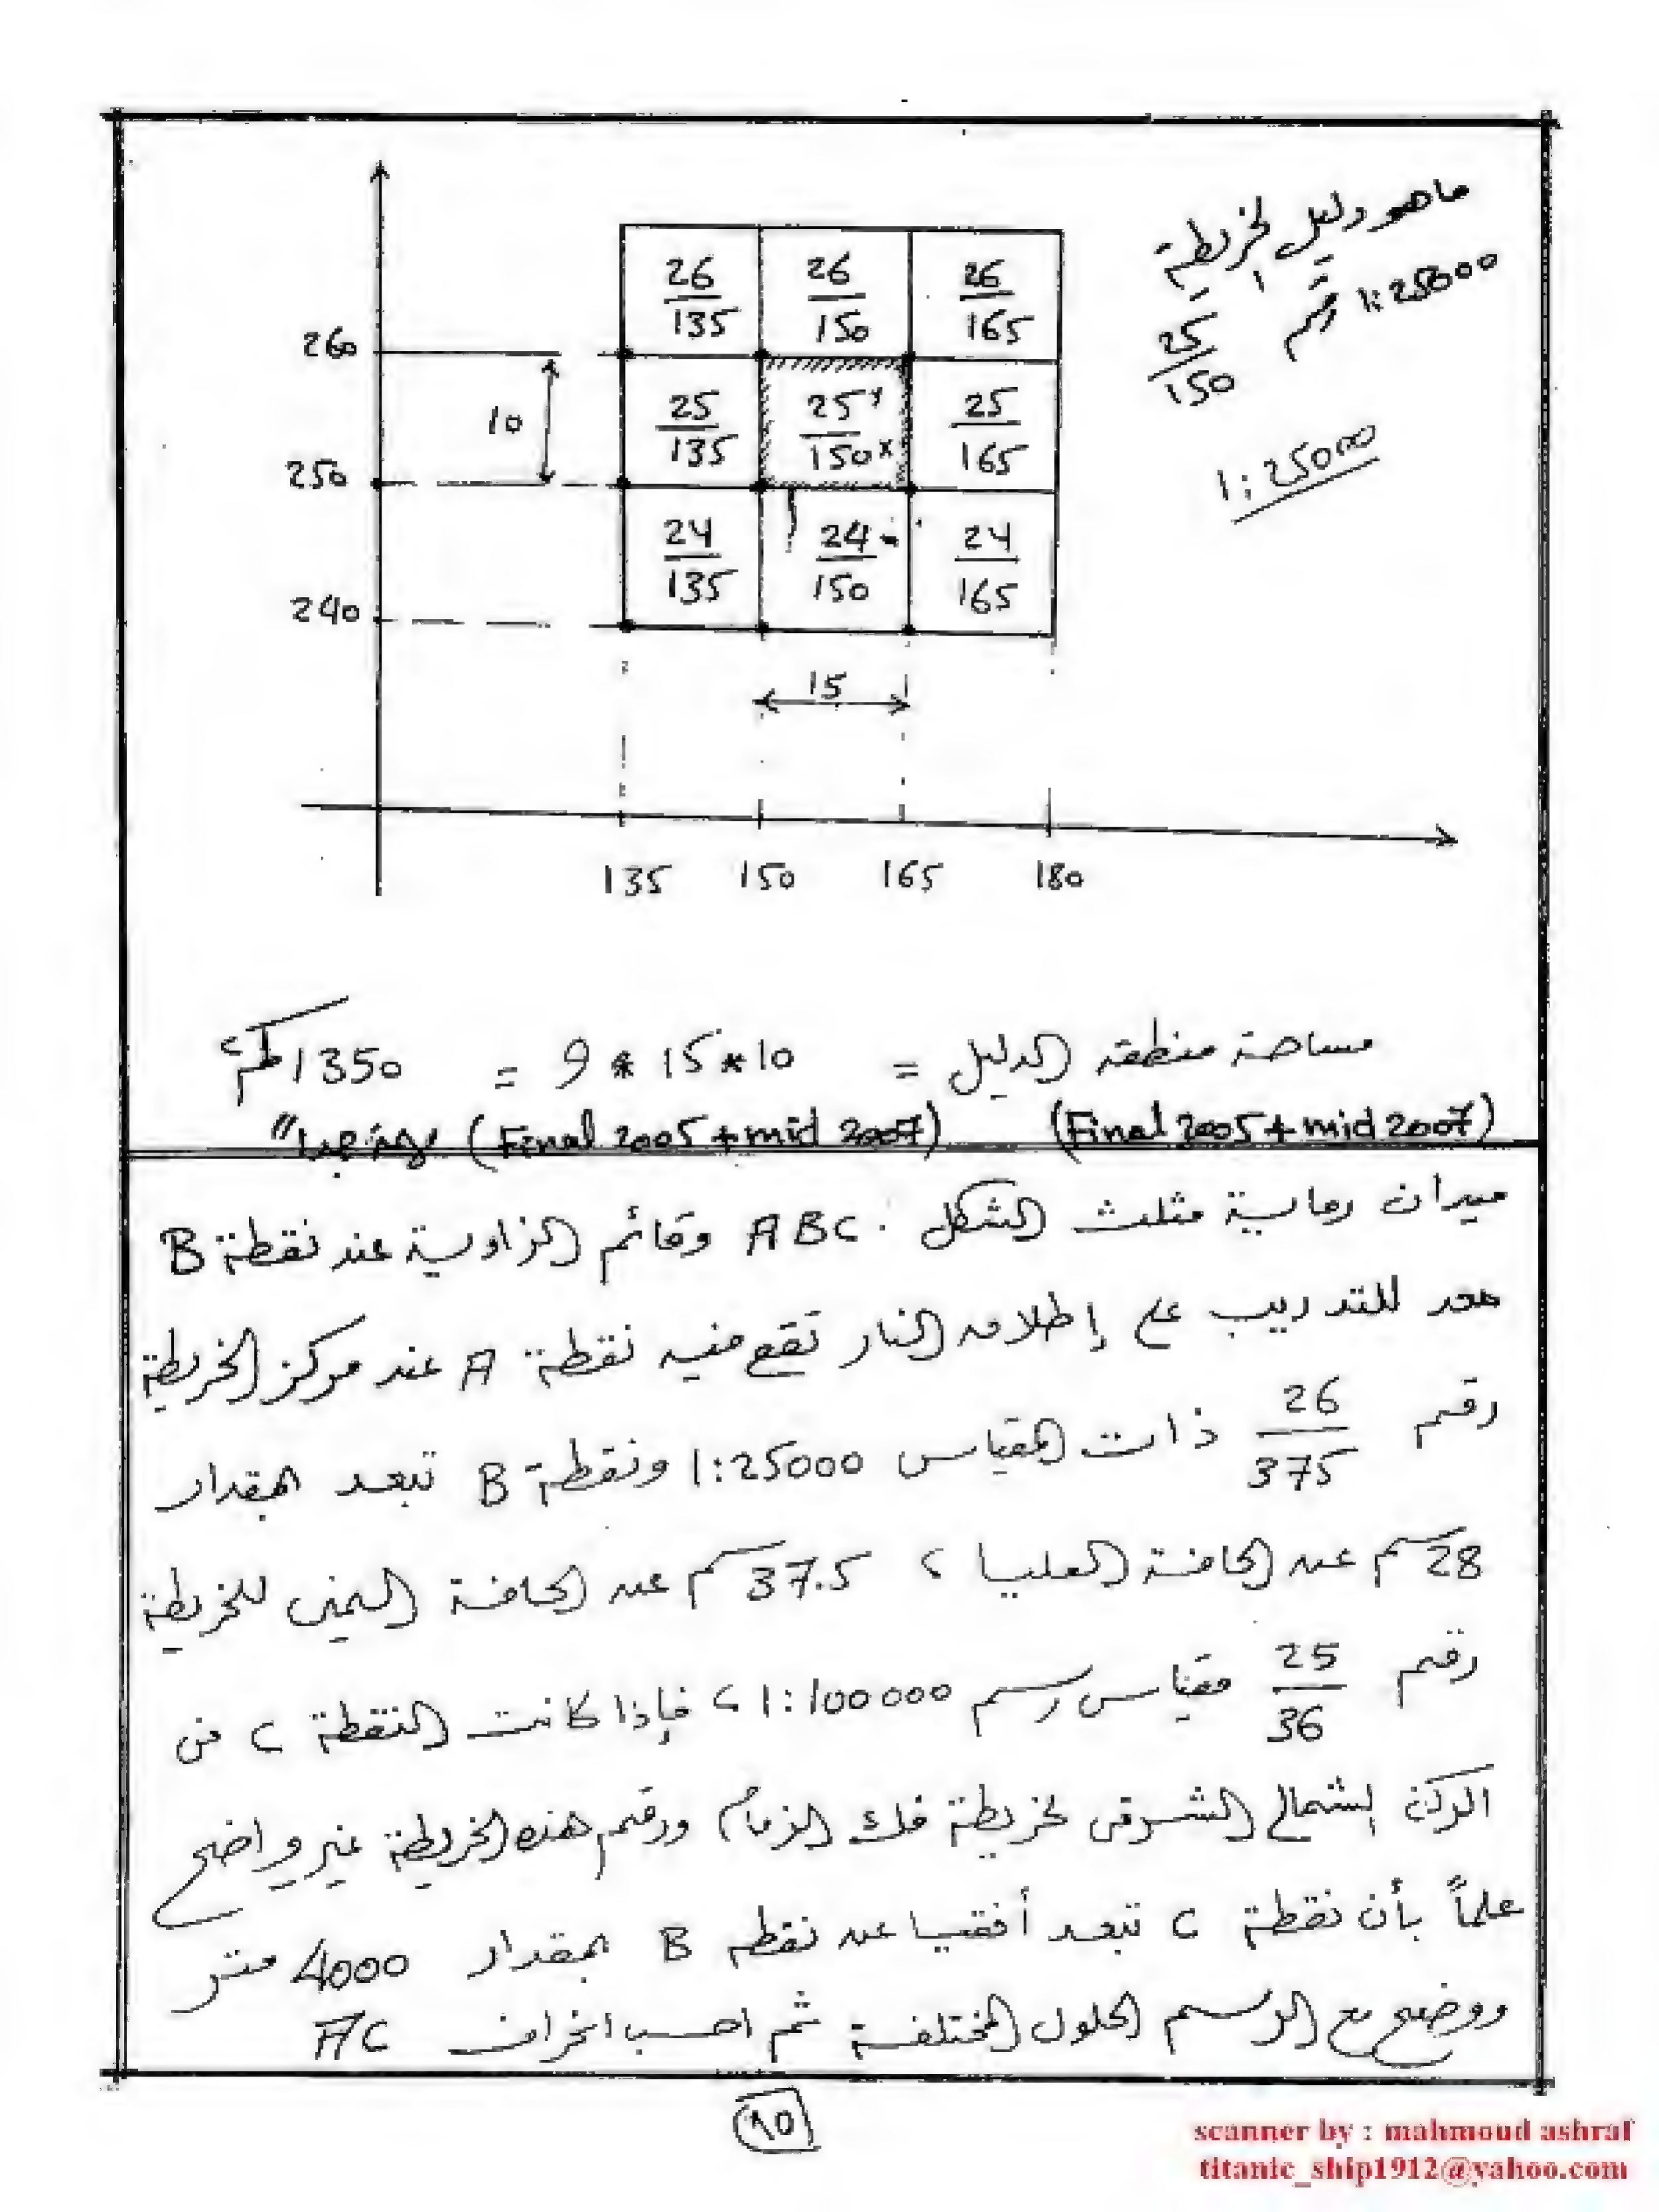 ماهو دليل لخريطة
1:25000 رقم 25/150
1:25000
26/135 26/150 26/165
260
10
25/135 25/150 25/165
y
x
250
24/135 24/150 24/165
240
15
135 150 165 180
مساحة منطقة الدليل = 10*15*9 = 1350 كم²
(Final 2005 + mid 2007) (Final 2005 + mid 2007)
ميدان رماية مثلث الشكل ABC وقائم الزاوية عند نقطة B
معد للتدريب على إطلاق النار تقع فيه نقطة A عند مركز الخريطة
رقم 26/375 ذات المقياس 1:25000 ونقطة B تبعد بمقدار
28 سم عن الحافة العليا ، 37.5 سم عن الحافة اليمنى للخريطة
رقم 25/36 مقياس رسم 1:100000 ، فإذا كانت النقطة C فى
الركن الشمالى الشرقى لخريطة فك الزمام ورقم هذه الخريطة غير واضح
علماً بأن نقطة C تبعد أفقيا عن نقطه B بمقدار 4000 متر
ووضح مع الرسم الحلول المختلفة ثم احسب انحراف AC
10
scanner by : mahmoud ashraf
titanic_ship1912@yahoo.com